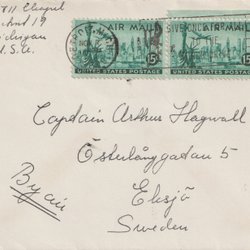 711 Chapel
U.S.A.
AIR MAIL
15¢
UNITED STATES POSTAGE
AIR MAIL
15¢
UNITED STATES POSTAGE
Captain Arthur Hagwall
Österlånggatan 5
Eksjö
Sweden
By air